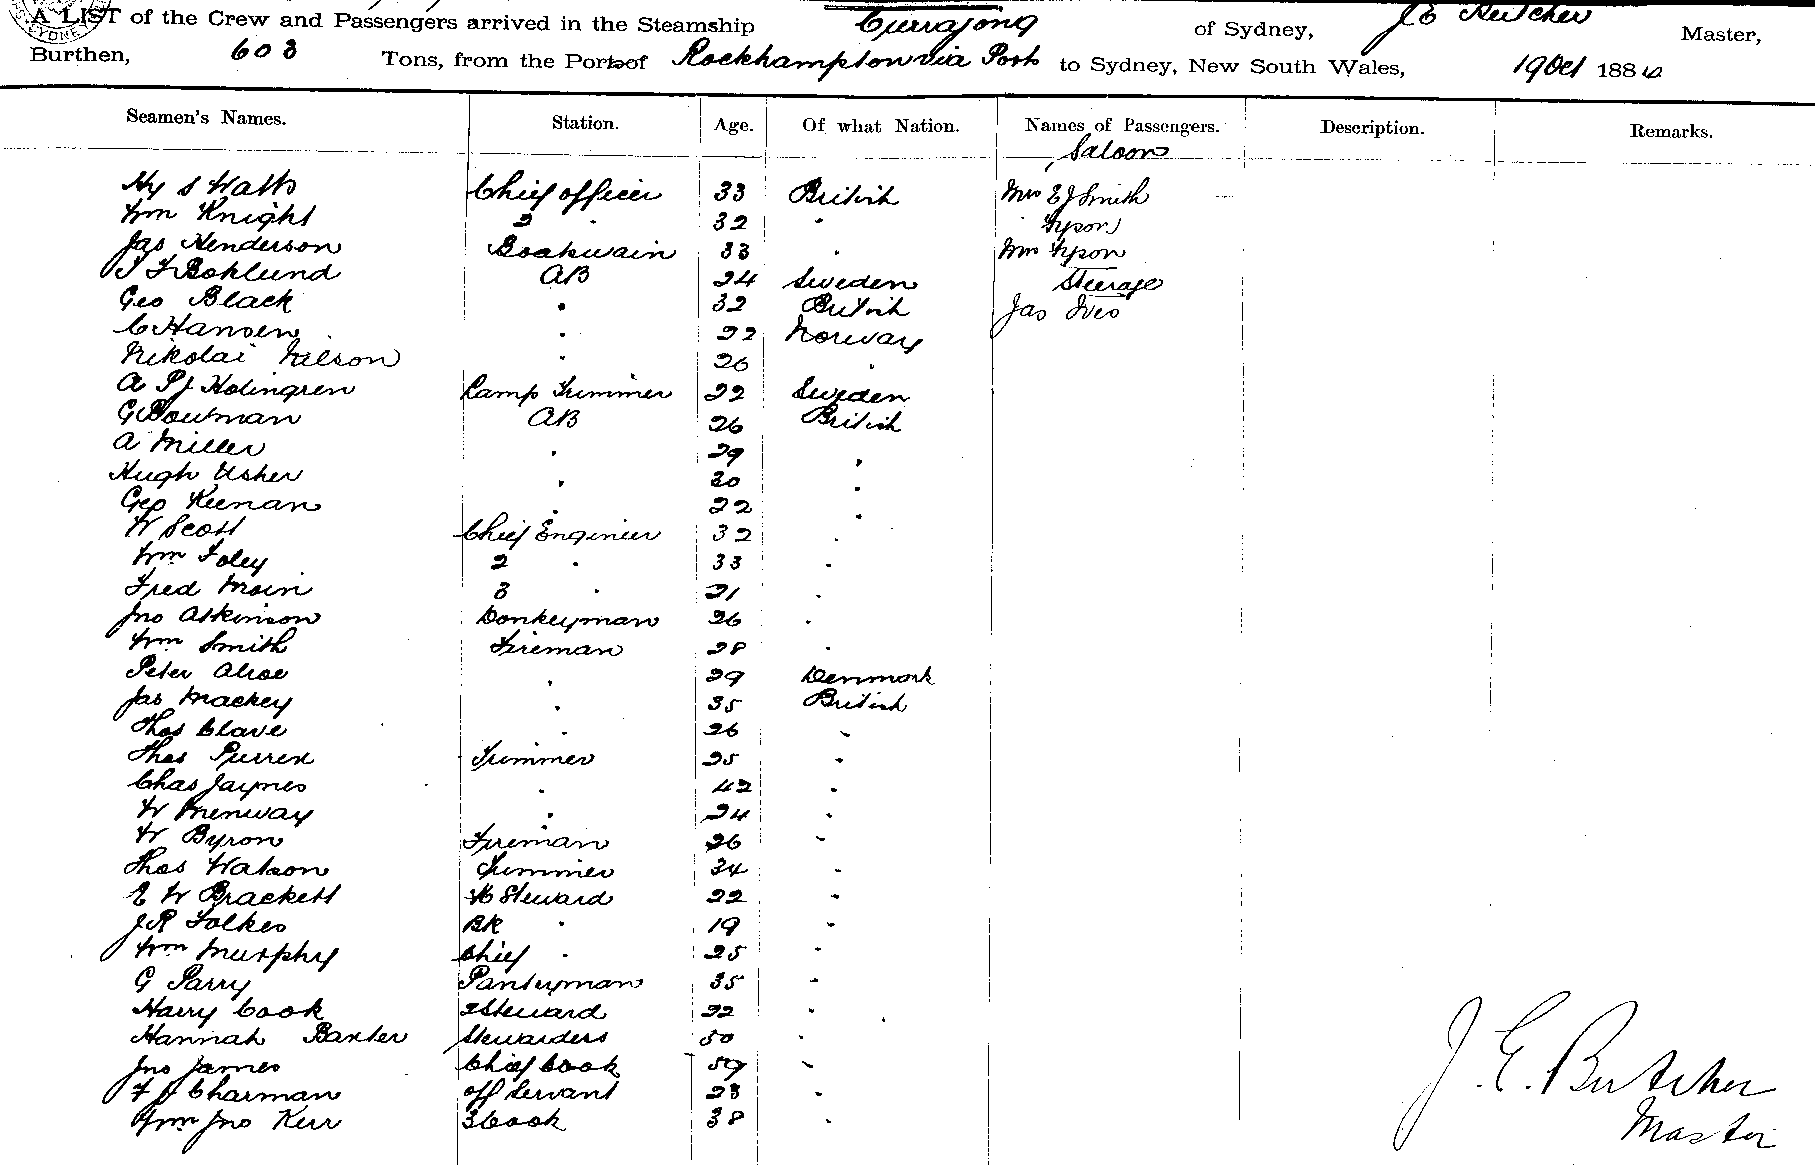 A LIST of the Crew and Passengers arrived in the Steamship Currajong of Sydney, J E Butcher Master,
Burthen, 603 Tons, from the Port of Rockhampton via Ports to Sydney, New South Wales, 19 Oct 188
Seamen's Names. Station. Age. Of what Nation. Names of Passengers. Description. Remarks.
Saloon
Hy S Watts Chief officer 33 British Mrs E J Smith
Wm Knight 2 " 32 "
Jas Henderson Boatswain 33 " Mrs
J F Boklund AB 24 Sweden Steerage
Geo Black " 32 British Jas Ives
C Hansen " 22 Norway
Nikolai Nilson " 26 "
A P J Holingren Lamp Trimmer 22 Sweden
G Boutman AB 26 British
A Miller " 29 "
Hugh Usher " 30 "
Geo Keenan " 22 "
W Scott Chief Engineer 32 "
Wm Foley 2 " 33 "
Fred Moin 3 " 21 "
Jno Atkinson Donkeyman 26 "
Wm Smith Fireman 28 "
Peter Alroe " 29 Denmark
Jas Mackey " 35 British
Thos Clave " 26 "
Thos Purren Trimmer 25 "
Chas Jaynes " 42 "
W Menway " 24 "
W Byron Fireman 26 "
Thos Watson Trimmer 34 "
E W Brackett Steward 22 "
J R Folkes BK " 19 "
Wm Murphy Chief " 25 "
G Parry Pantryman 35 "
Harry Cook 2 Steward 22 "
Hannah Baxter Stewardess 50 "
Jno James Chief Cook 59 "
F J Charman off Servant 23 "
Wm Jno Kerr 3 Cook 38 "
J. E. Butcher
Master